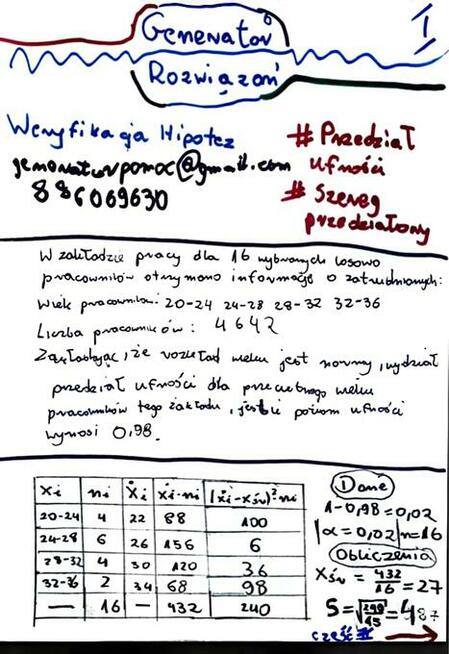 Generator I
Rozwiązań
Weryfikacja Hipotez
generatorpomoc@gmail.com
886069630
# Przedział
ufności
# Szereg
przedziałowy
W zakładzie pracy dla 16 wybranych losowo
pracowników otrzymano informacje o zatrudnionych:
Wiek pracowników: 20-24 24-28 28-32 32-36
Liczba pracowników: 4 6 4 2
Zakładając, że rozkład wieku jest normalny, wydział
przedział ufności dla przeciętnego wieku
pracowników tego zakładu, jeśli poziom ufności
wynosi 0,98.
xi ni ẋi ẋi·ni (ẋi-xśr)²ni
20-24 4 22 88 100
24-28 6 26 156 6
28-32 4 30 120 36
32-36 2 34 68 98
— 16 — 432 240
Dane
1-0,98=0,02
α=0,02 n=16
Obliczenia
Xśr = 432/16 = 27
S=√240/15=4
część II →